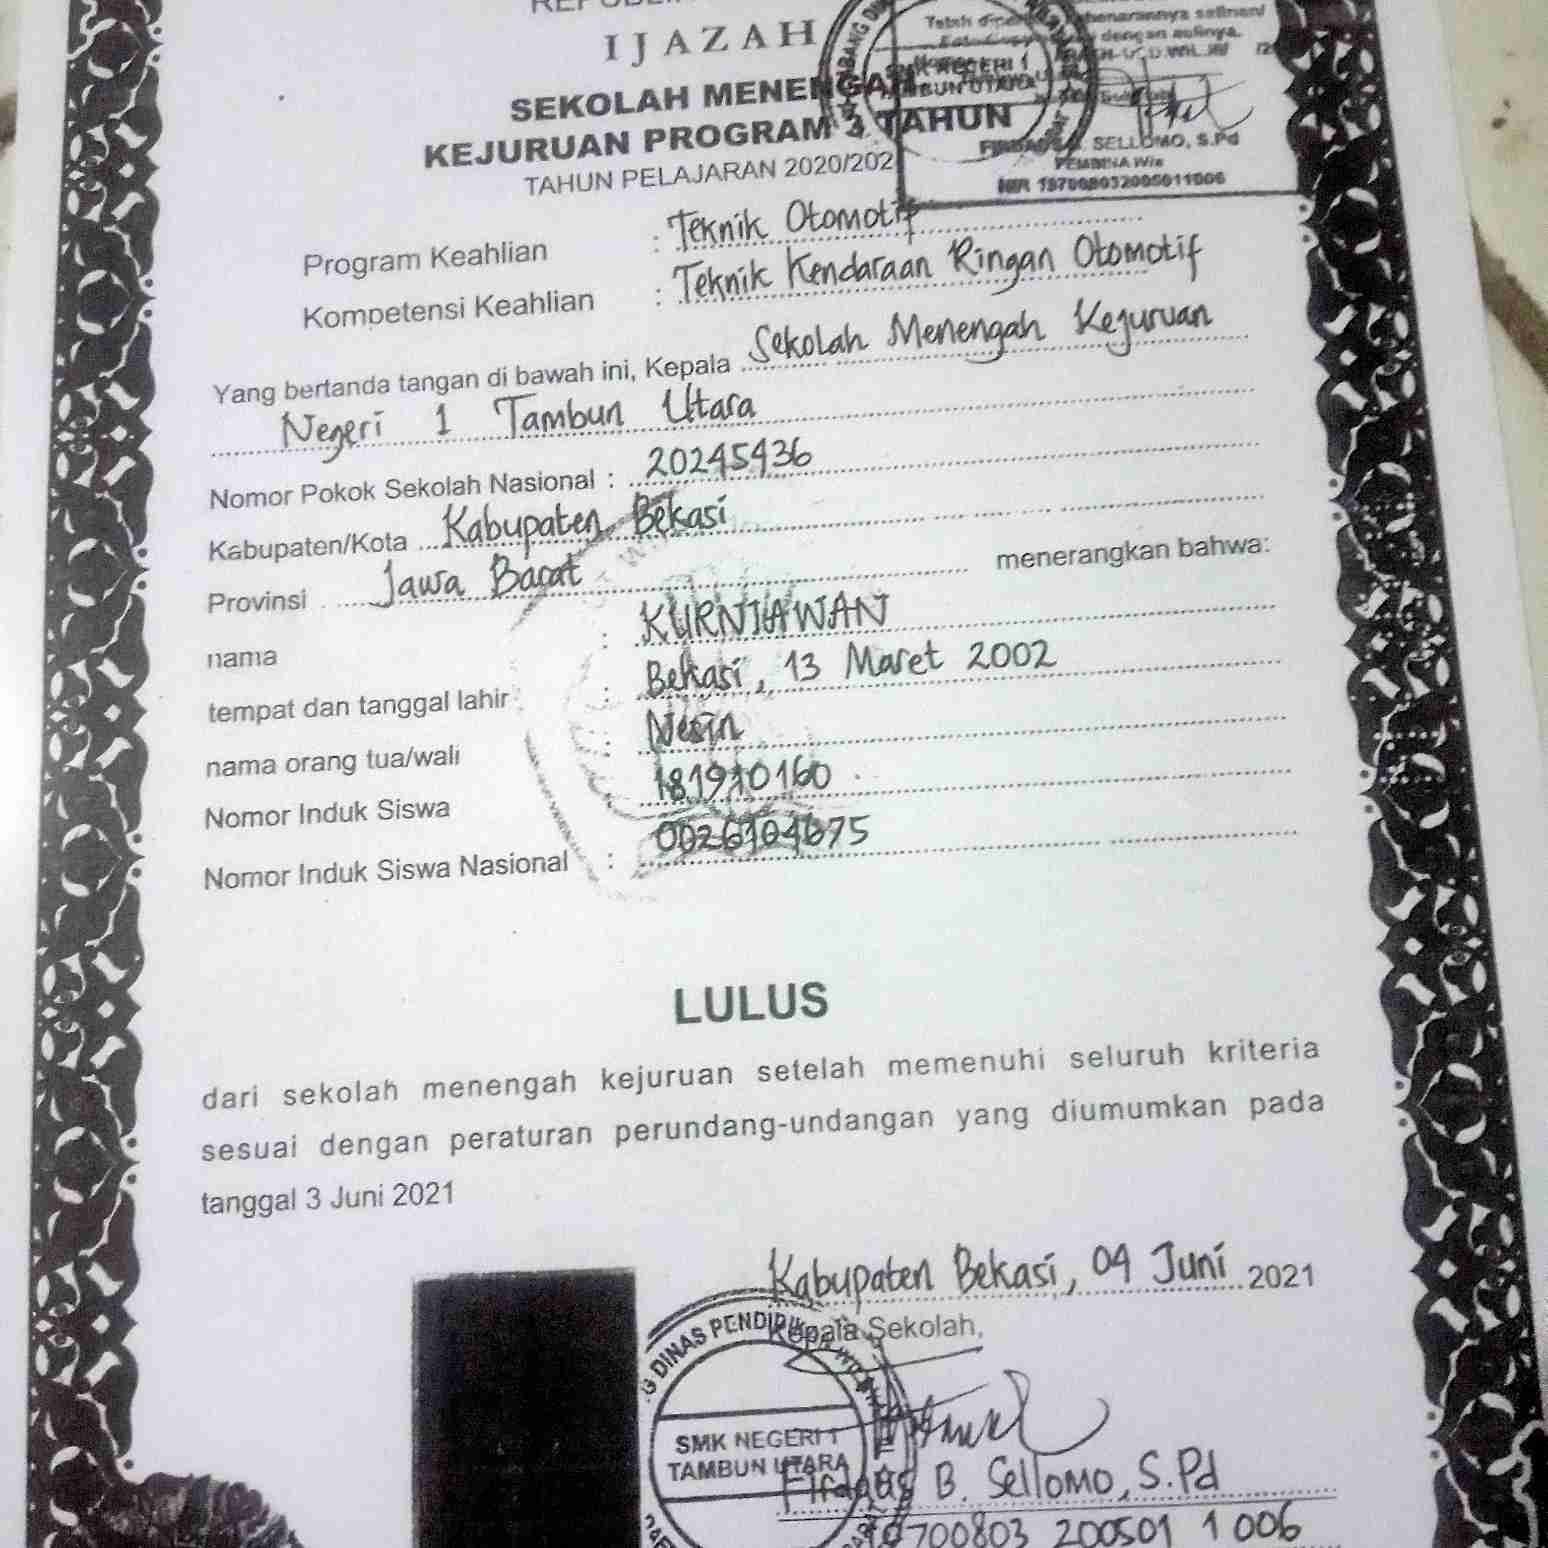 IJAZAH
SEKOLAH MENENGAH
KEJURUAN PROGRAM 3 TAHUN
TAHUN PELAJARAN 2020/202
dengan aslinya.
SMK NEGERI 1
TAMBUN UTARA
SELLOMO, S.Pd
PEMBINA IV/a
NIP. 197008032005011006
Program Keahlian : Teknik Otomotif
Kompetensi Keahlian : Teknik Kendaraan Ringan Otomotif
Yang bertanda tangan di bawah ini, Kepala Sekolah Menengah Kejuruan
Negeri 1 Tambun Utara
Nomor Pokok Sekolah Nasional : 20245436
Kabupaten/Kota Kabupaten Bekasi
Provinsi Jawa Barat menerangkan bahwa:
nama : KURNIAWAN
tempat dan tanggal lahir : Bekasi, 13 Maret 2002
nama orang tua/wali : Nesin
Nomor Induk Siswa : 181910160
Nomor Induk Siswa Nasional :
LULUS
dari sekolah menengah kejuruan setelah memenuhi seluruh kriteria
sesuai dengan peraturan perundang-undangan yang diumumkan pada
tanggal 3 Juni 2021
Kabupaten Bekasi, 04 Juni 2021
Kepala Sekolah,
DINAS PENDIDIKAN
SMK NEGERI 1
TAMBUN UTARA
Firdaus B. Sellomo, S.Pd
19700803 200501 1 006